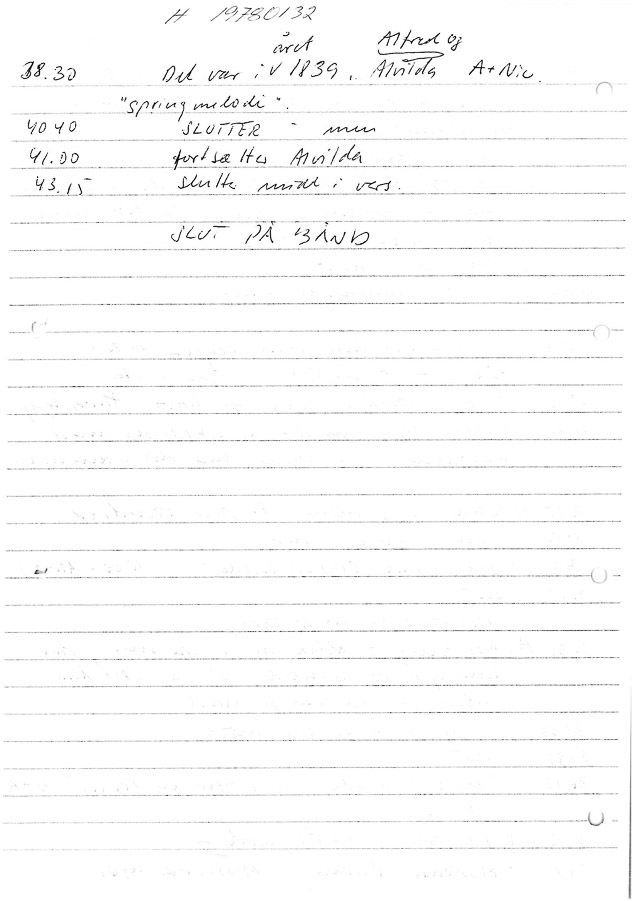 H 19780132
året Alfred og
38.30 Det var i V 1839, Alvilda A+Nic.
"springmelodi".
40 40 SLUTTER - men
41.00 fortsætter Alvilda
43.15 slutter midt i vers.
SLUT PÅ BÅND